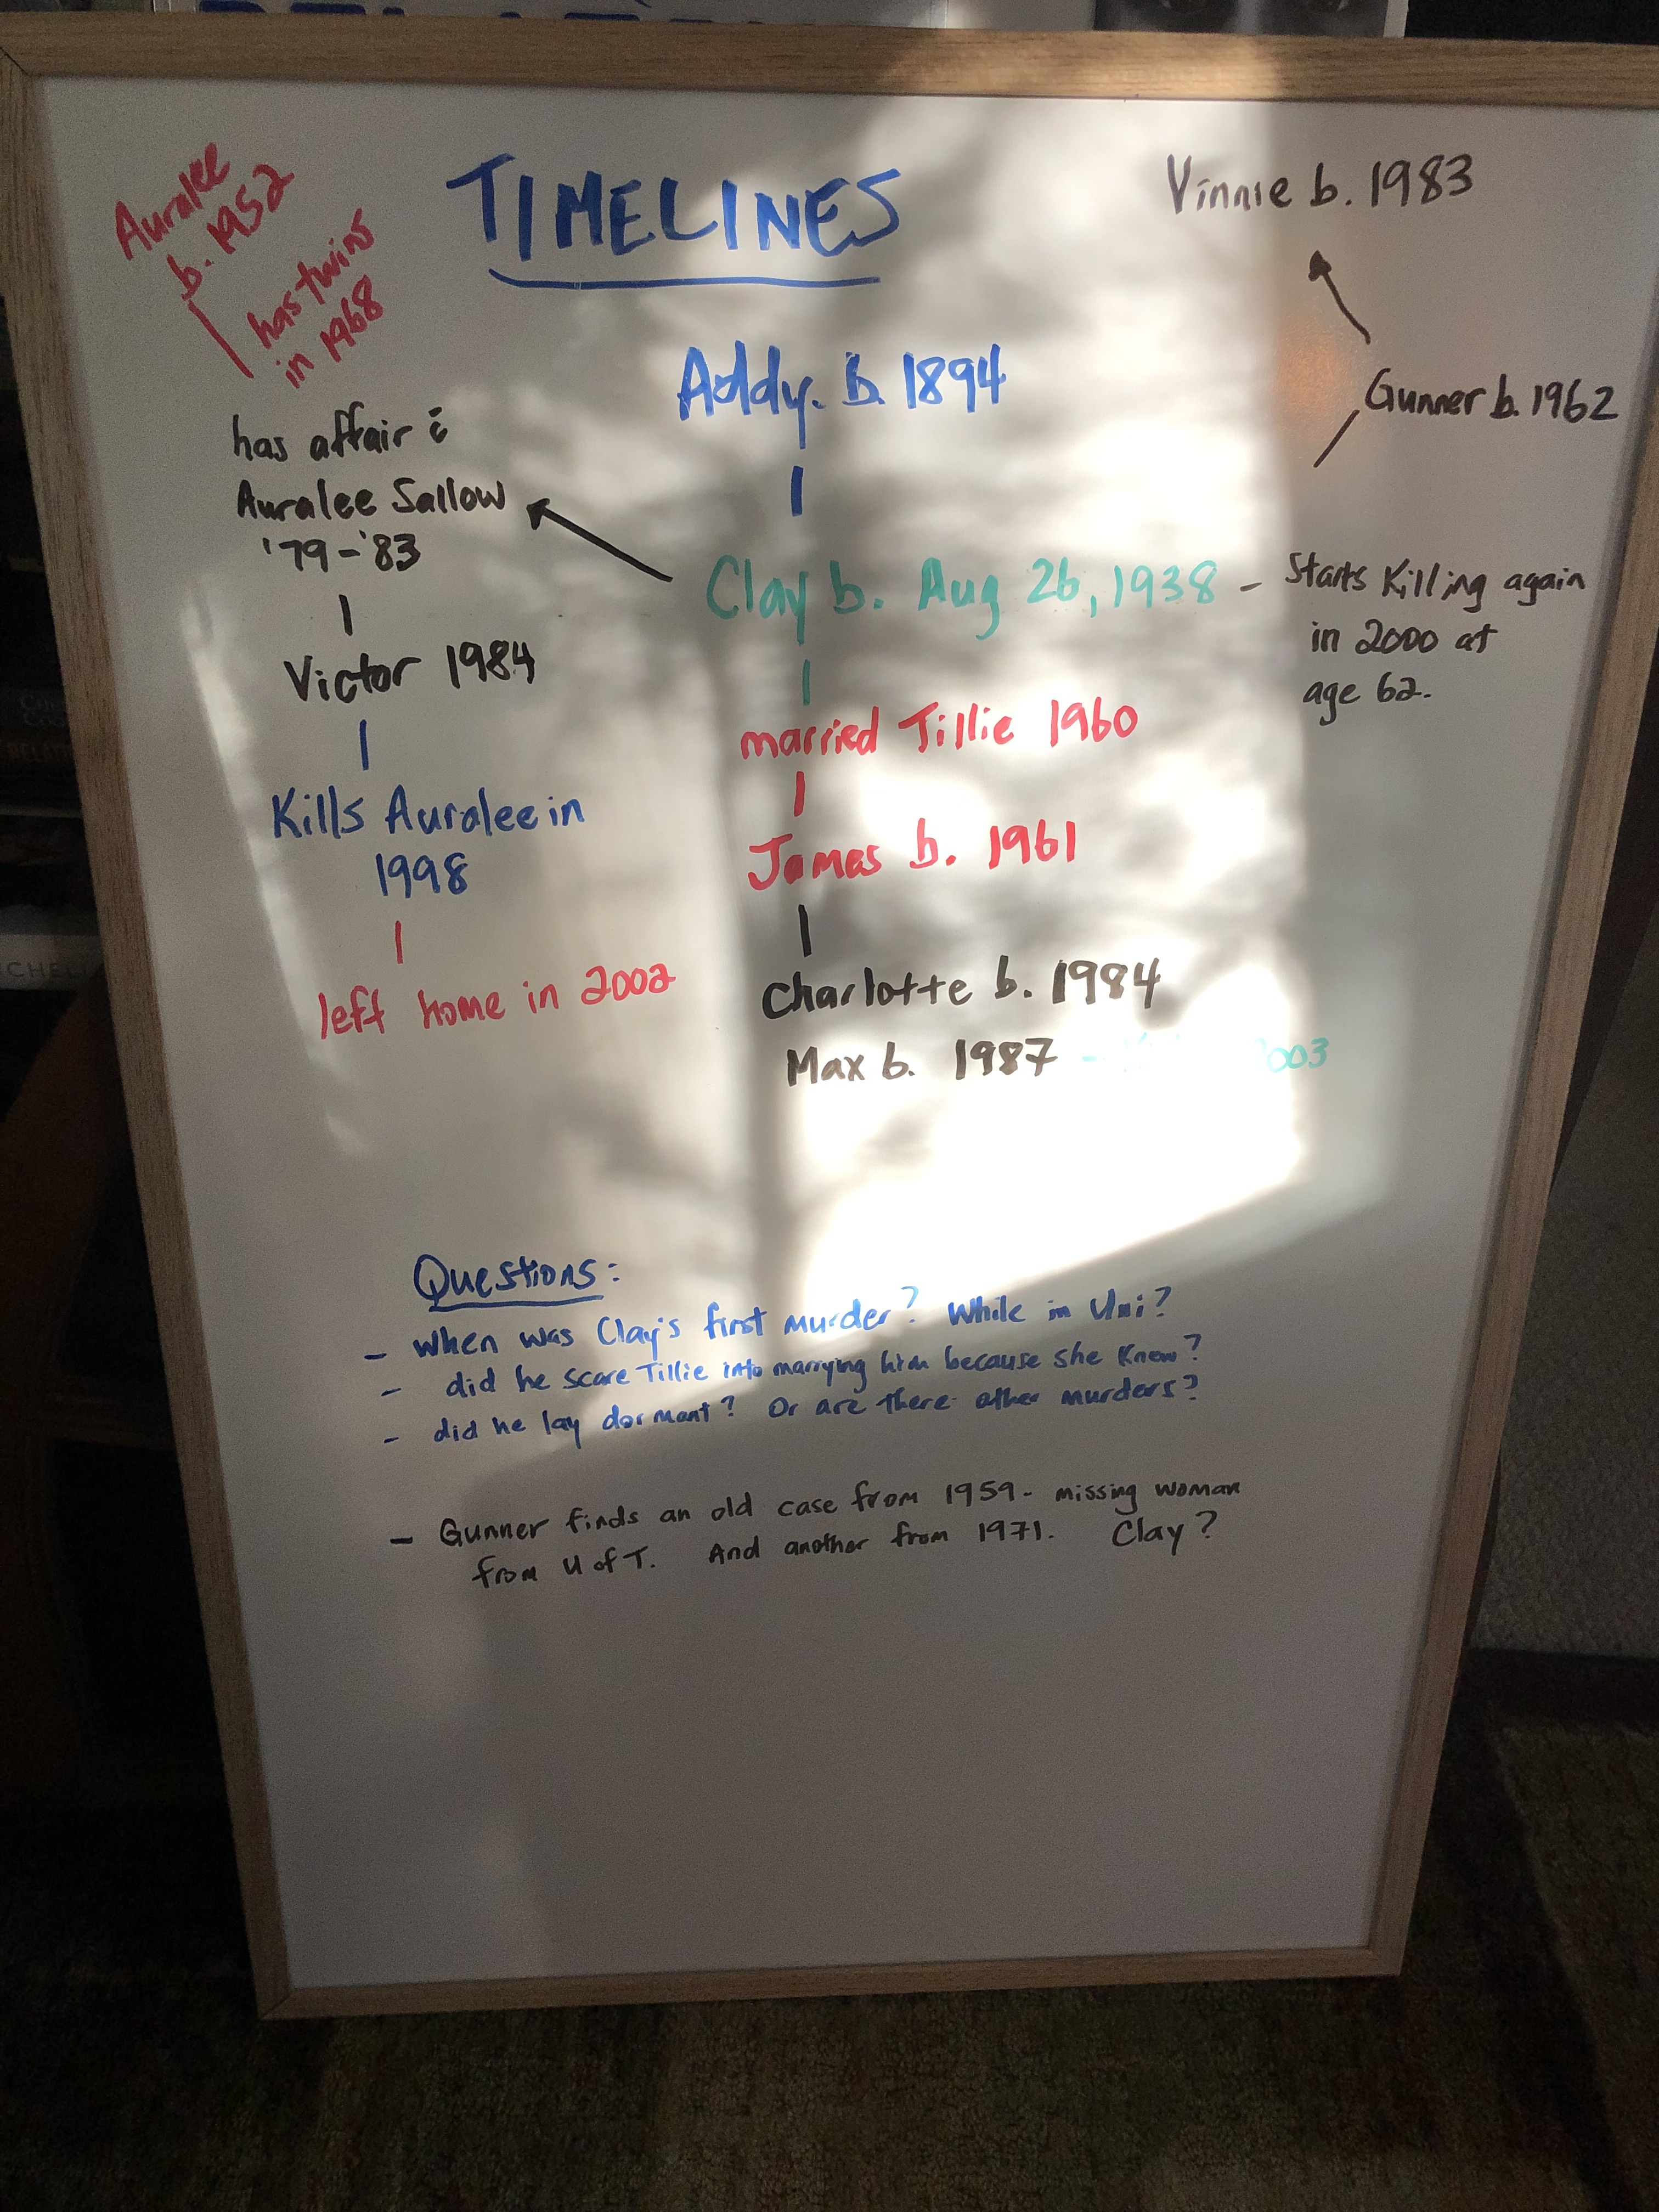 TIMELINES
Auralee
b. 1952
has twins
in 1968
Vinnie b. 1983
Addy. b. 1894
Gunner b. 1962
has affair c̄
Auralee Sallow
'79-'83
Clay b. Aug 26, 1938 - Starts Killing again
in 2000 at
age 62.
Victor 1984
married Tillie 1960
Kills Auralee in
1998
James b. 1961
left home in 2002
Charlotte b. 1984
Max b. 1987 -
Questions:
- When was Clay's first murder? While in Uni?
- did he scare Tillie into marrying him because she knew?
- did he lay dormant? Or are there other murders?
- Gunner finds an old case from 1959- missing woman
from U of T. And another from 1971. Clay?